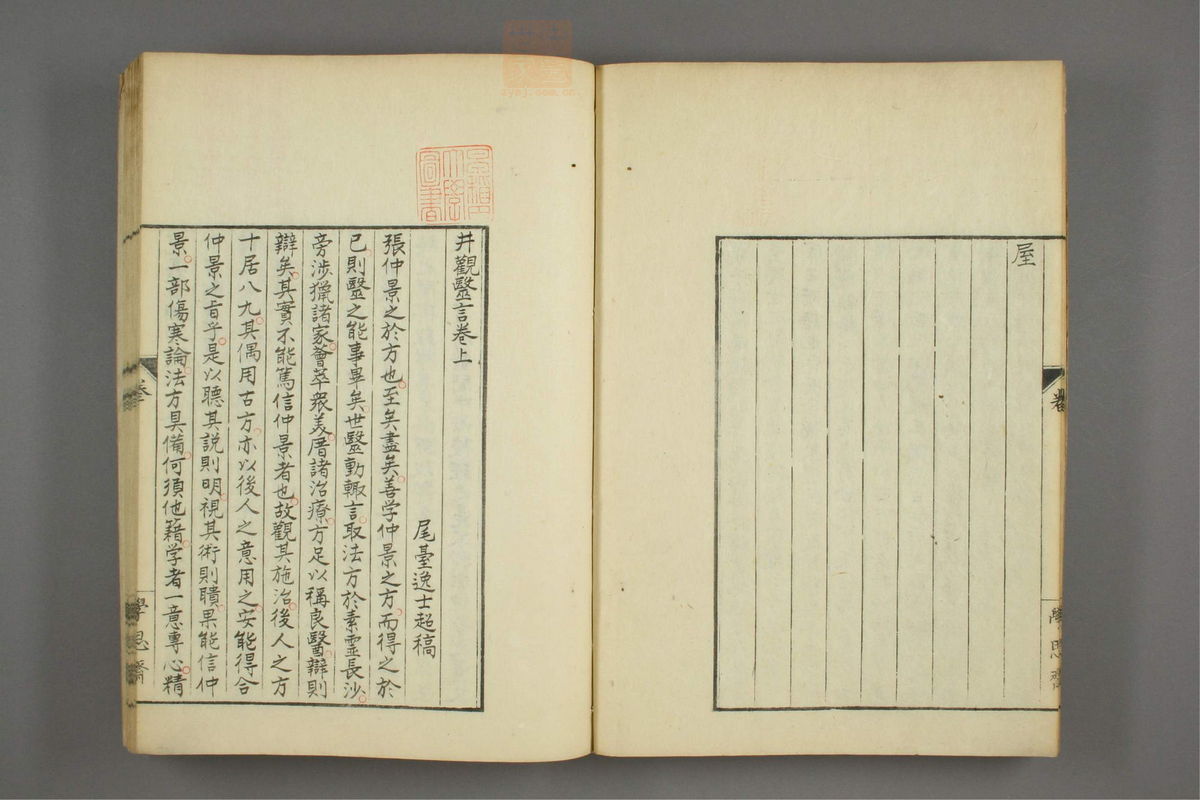 屋
井觀醫言卷上
尾臺逸士超稿
張仲景之於方也至矣盡矣善学仲景之方而得之於
已則醫之能事畢矣世醫動輙言取法方於素靈長沙
旁涉獵諸家薈萃衆美厝諸治療方足以稱良醫辯則
辯矣其實不能篤信仲景者也故觀其施治後人之方
十居八九其偶用古方亦以後人之意用之安能得合
仲景之旨乎是以聽其説則明視其術則瞶果能信仲
景一部傷寒論法方具備何須他籍学者一意專心精
學思齋
學思齋